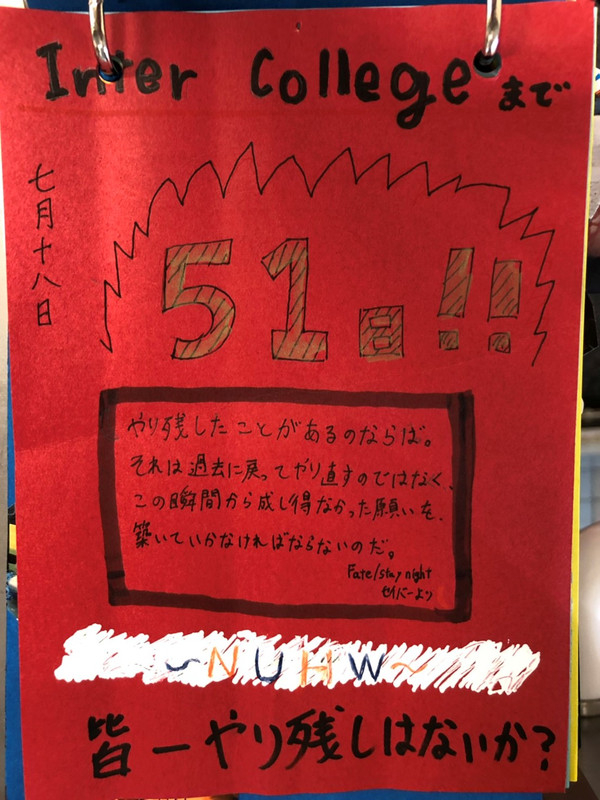 Inter College まで
七月十八日
51日!!
やり残したことがあるのならば。
それは過去に戻ってやり直すのではなく、
この瞬間から成し得なかった願いを、
築いていかなければならないのだ。
Fate/stay night
セイバーより
~NUHW~
皆ーやり残しはないか?